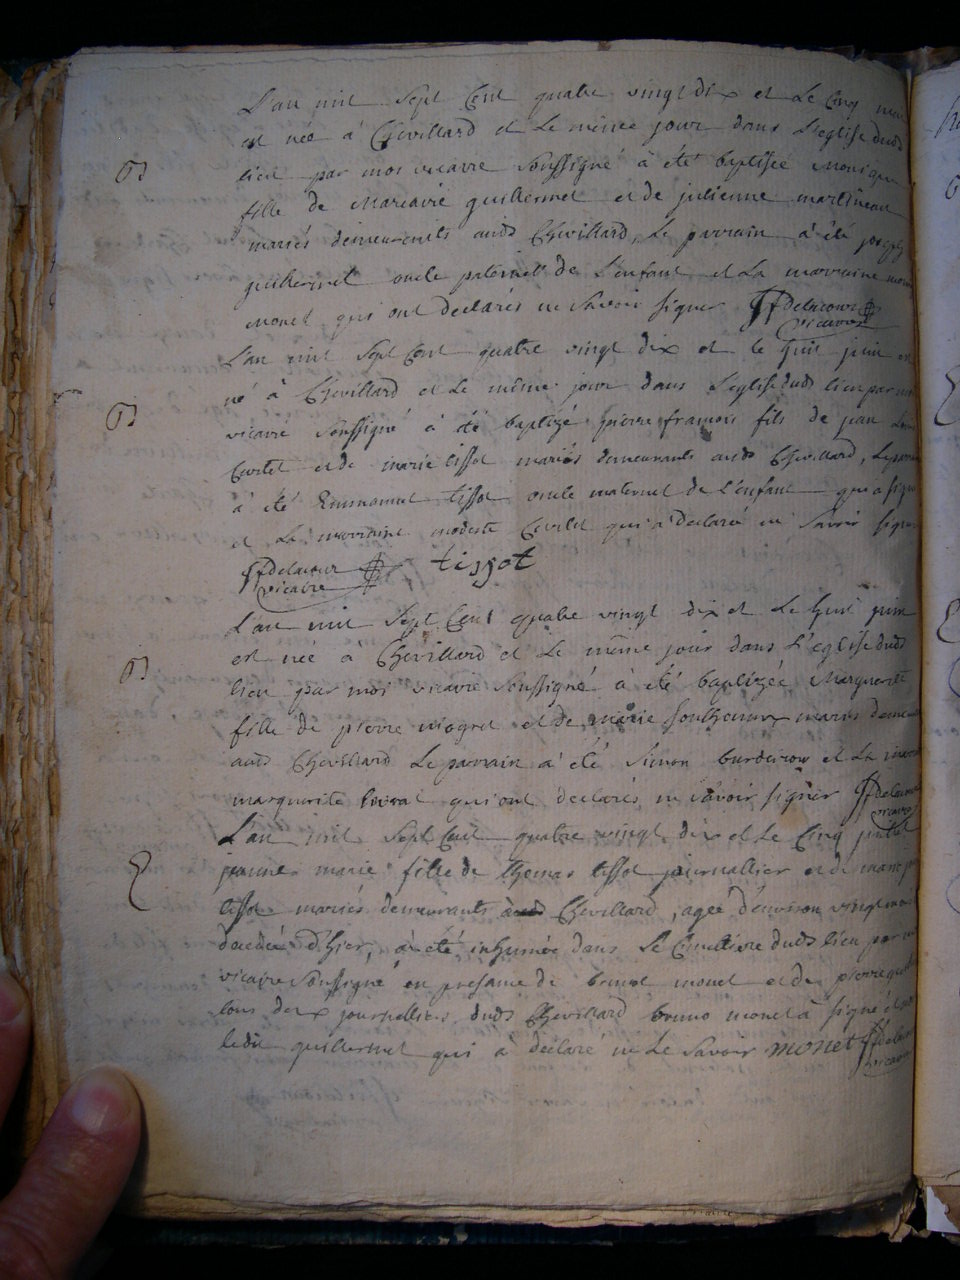 L'an mil Sept Cent quatre vingt dix et Le Cinq
est née à Chevillard et Le même jour dans L'eglise dudt
lieu par moi vicaire Soussigné à été baptisée Monique
fille de guillermet et de julienne martineau
mariés demeurants audt Chevillard, Le parrain à été joseph
guillermet oncle paternel de L'enfant et La marraine
Monet qui ont declarés ne Savoir signer ffdelacour
vicaire
L'an mil Sept Cent quatre vingt dix et le huit juin est
né à Chevillard et Le même jour dans L'eglise dudt lieu par moi
vicaire Soussigné à été baptizé pierre françois fils de jean Louis
Curtet et de marie tissot mariés demeurants audt Chevillard, Le parrain
à été Emmanuel tissot oncle maternel de L'enfant qui a signé
et La marraine modeste Curtet qui à declaré ne Savoir signer
ffdelacour tissot
vicaire
L'an mil Sept Cent quatre vingt dix et Le huit juin
est née à Chevillard et Le même jour dans L'eglise dudt
lieu par moi vicaire Soussigné à été baptizée Marguerite
fille de pierre et de marie mariés
audt Chevillard Le parrain à été Simon et La
marguerite qui ont declarés ne Savoir signer ffdelacour
vicaire
L'an mil Sept Cent quatre vingt dix et Le Cinq
jeanne marie fille de thomas tissot journallier et de marie
tissot mariés demeurants Chevillard, agée d'environ vingt
decedée d'hier, à été inhumée dans Le Cimetiere dudt lieu par
vicaire Soussigné en presence de bruno monet et de pierre
deux journalliers dudt Chevillard bruno monet à signé
ledit guillermet qui à declaré ne Le Savoir monet ffdelacour
vicaire